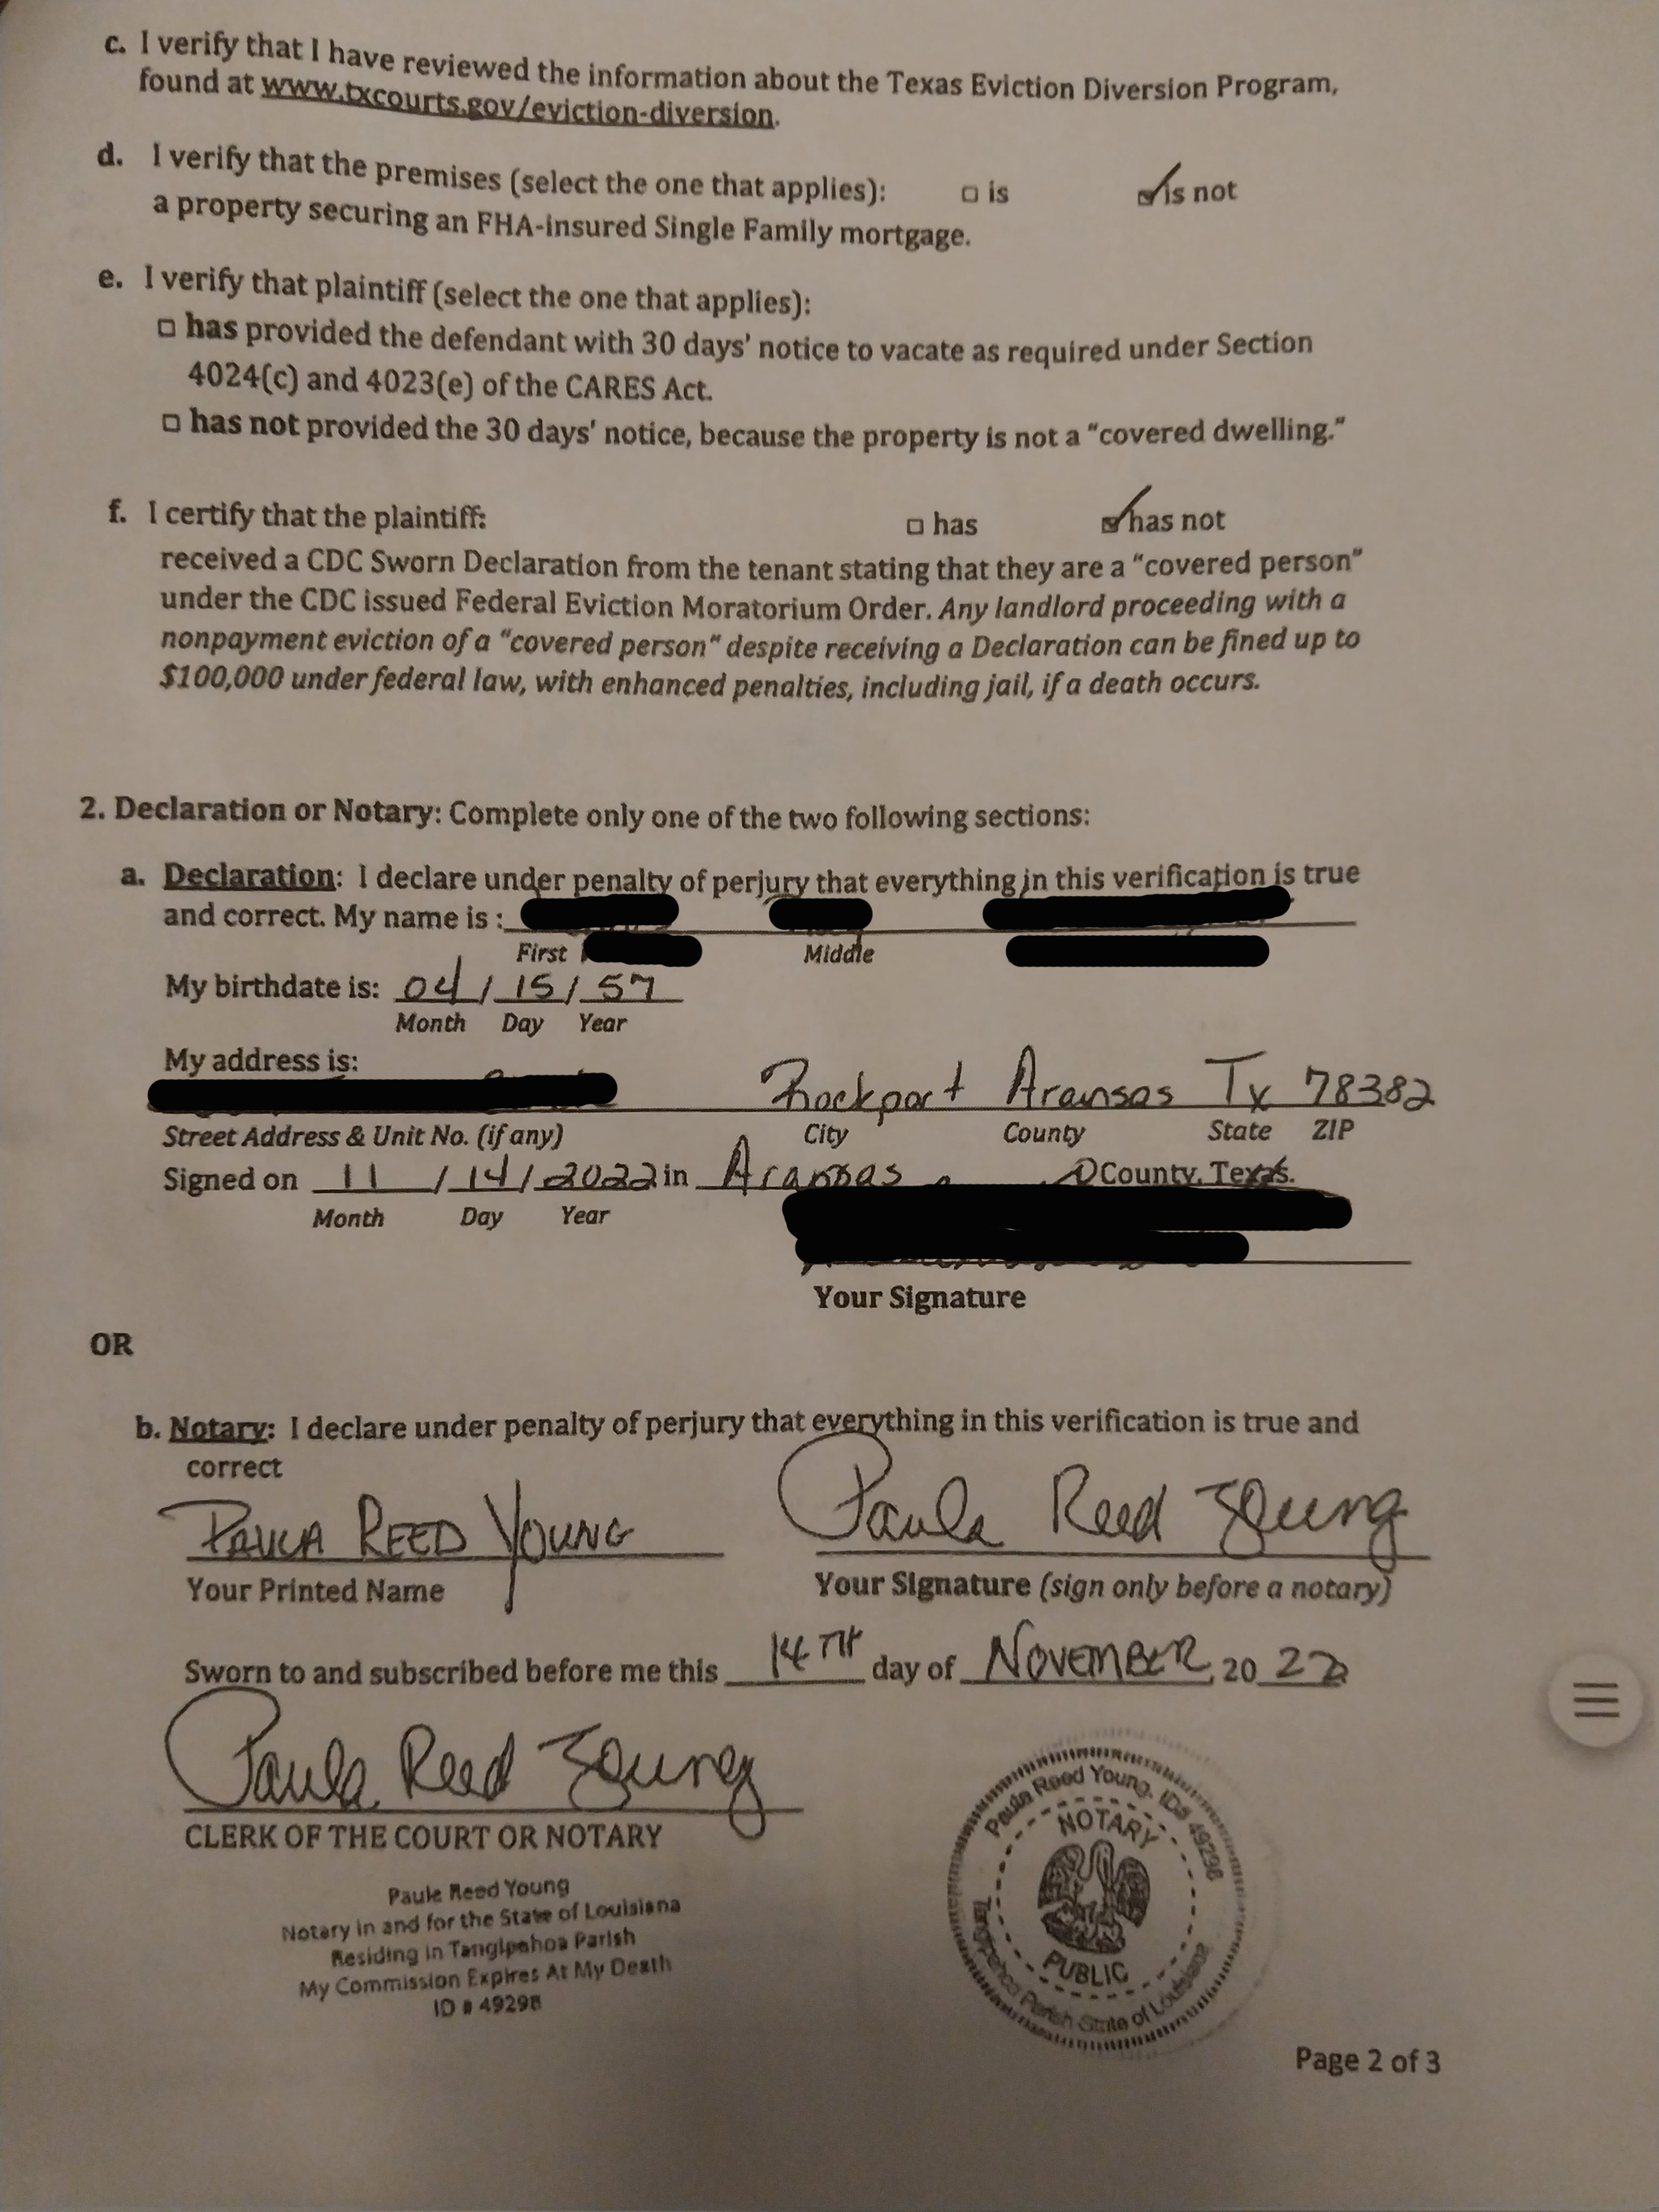 c. I verify that I have reviewed the information about the Texas Eviction Diversion Program,
found at www.txcourts.gov/eviction-diversion.
d. I verify that the premises (select the one that applies): □ is ☑ is not
a property securing an FHA-insured Single Family mortgage.
e. I verify that plaintiff (select the one that applies):
□ has provided the defendant with 30 days' notice to vacate as required under Section
4024(c) and 4023(e) of the CARES Act.
□ has not provided the 30 days' notice, because the property is not a "covered dwelling."
f. I certify that the plaintiff: □ has ☑ has not
received a CDC Sworn Declaration from the tenant stating that they are a "covered person"
under the CDC issued Federal Eviction Moratorium Order. Any landlord proceeding with a
nonpayment eviction of a "covered person" despite receiving a Declaration can be fined up to
$100,000 under federal law, with enhanced penalties, including jail, if a death occurs.
2. Declaration or Notary: Complete only one of the two following sections:
a. Declaration: I declare under penalty of perjury that everything in this verification is true
and correct. My name is :
First Middle
My birthdate is: 04 / 15 / 57
Month Day Year
My address is:
Rockport Aransas Tx 78382
Street Address & Unit No. (if any) City County State ZIP
Signed on 11 / 14 / 2022 in Aransas County, Texas.
Month Day Year
Your Signature
OR
b. Notary: I declare under penalty of perjury that everything in this verification is true and
correct
PAULA REED YOUNG Paula Reed Young
Your Printed Name Your Signature (sign only before a notary)
Sworn to and subscribed before me this 14TH day of NOVEMBER, 20 22
Paula Reed Young
CLERK OF THE COURT OR NOTARY
Paula Reed Young
Notary in and for the State of Louisiana
Residing in Tangipahoa Parish
My Commission Expires At My Death
ID # 49298
Paula Reed Young, ID# 49298
NOTARY
PUBLIC
Tangipahoa Parish State of Louisiana
Page 2 of 3